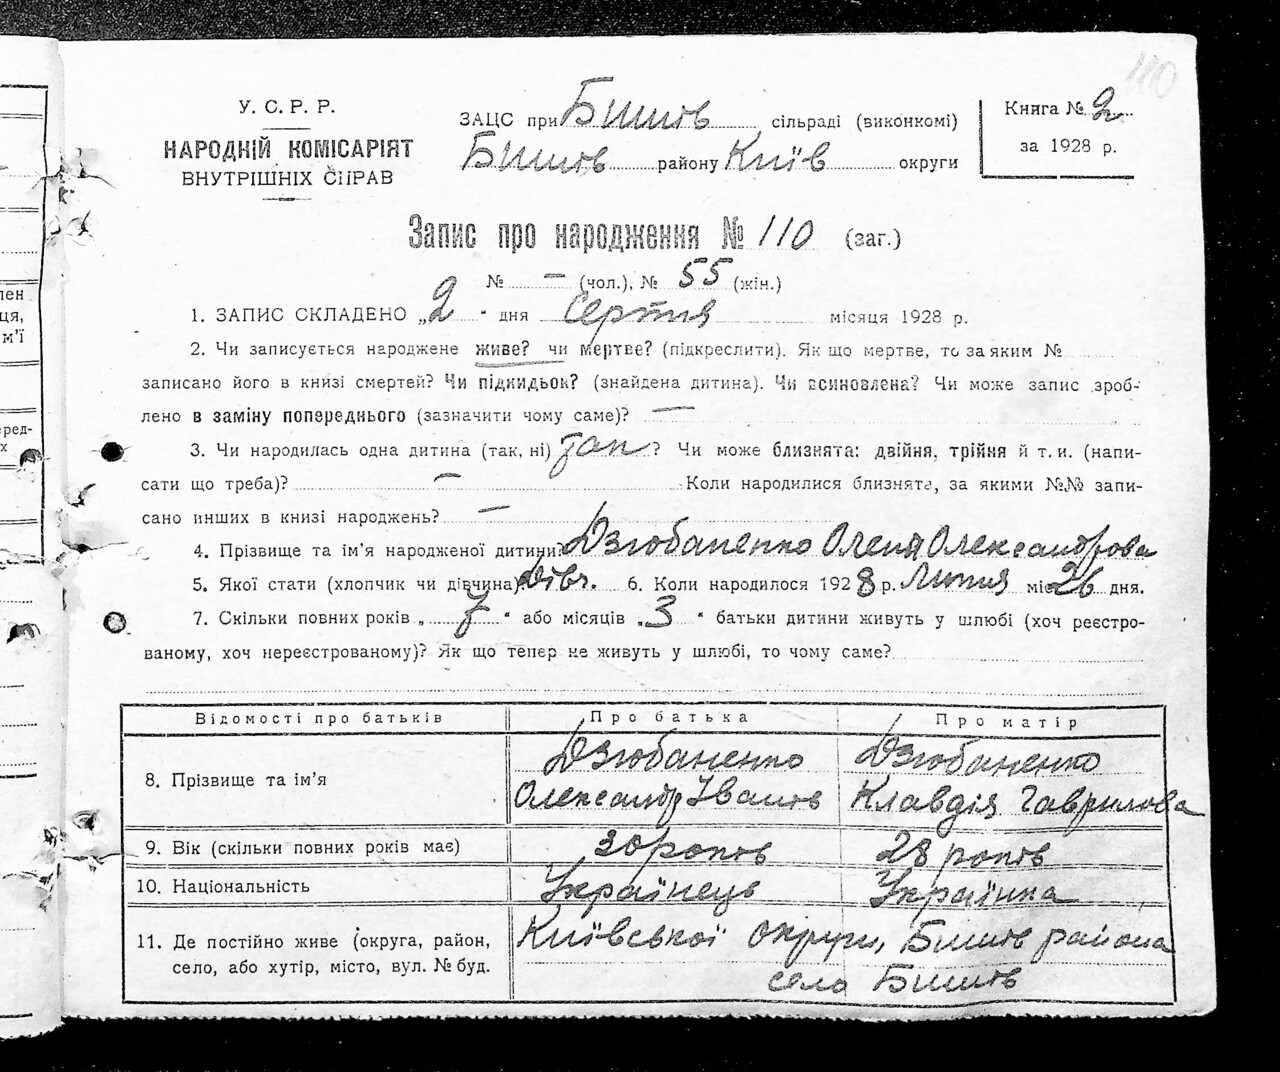 110
У. С. Р. Р.
НАРОДНІЙ КОМІСАРІЯТ
ВНУТРІШНІХ СПРАВ
ЗАЦС при Бишів сільраді (виконкомі)
Бишів району Київ округи
Книга № 2
за 1928 р.
Запис про народження № 110 (заг.)
№ — (чол.), № 55 (жін.)
1. ЗАПИС СКЛАДЕНО „2" дня Серпня місяця 1928 р.
2. Чи записується народжене живе? чи мертве? (підкреслити). Як що мертве, то за яким №
записано його в книзі смертей? Чи підкидьок? (знайдена дитина). Чи всиновлена? Чи може запис зроб-
лено в заміну попереднього (зазначити чому саме)? —
3. Чи народилась одна дитина (так, ні) так? Чи може близнята: двійня, трійня й т. и. (напи-
сати що треба)? — Коли народилися близнята, за якими №№ запи-
сано инших в книзі народжень? —
4. Прізвище та ім'я народженої дитини? Дзюбаненко Олена Олександрова
5. Якої стати (хлопчик чи дівчина) Дівч. 6. Коли народилося 1928 р. Липня міс 26 дня.
7. Скільки повних років „ 7 " або місяців „ 3 " батьки дитини живуть у шлюбі (хоч реєстро-
ваному, хоч нереєстрованому)? Як що тепер не живуть у шлюбі, то чому саме?
Відомості про батьків Про батька Про матір
8. Прізвище та ім'я Дзюбаненко Олександр Іванів Дзюбаненко Клавдія Гаврилова
9. Вік (скільки повних років має) 30 років 28 років
10. Національність Українець Українка
11. Де постійно живе (округа, район, Київської округи, Бишів района
село, або хутір, місто, вул. № буд. село Бишів
лен
ця,
м'ї
еред-
х